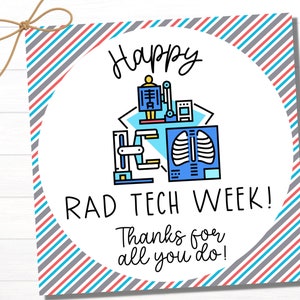 Happy
RAD TECH WEEK!
Thanks for
all you do!